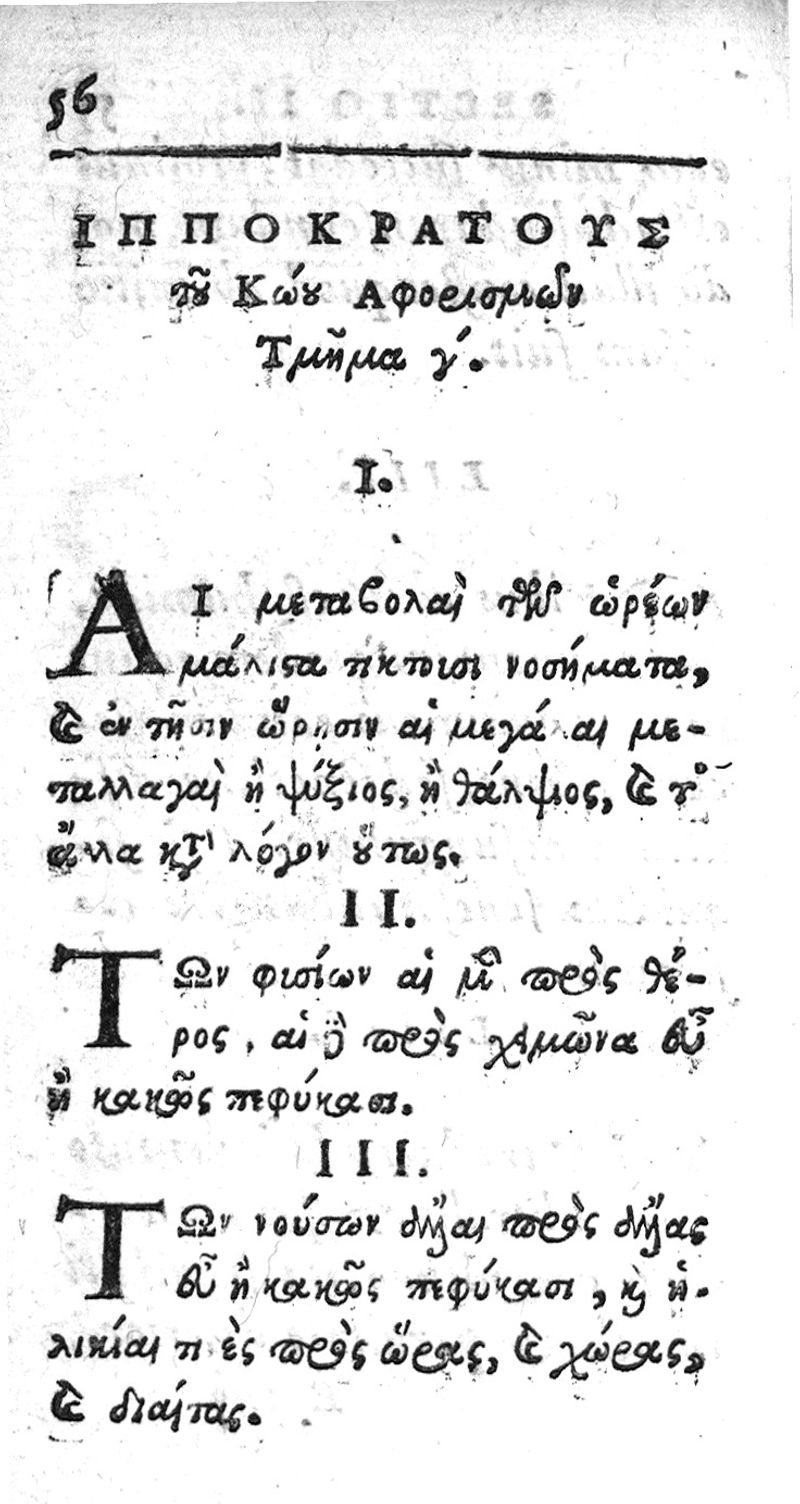 56
ΙΠΠΟΚΡΑΤΟΥΣ
τοῦ Κώου Αφορισμῶν
Τμῆμα γ΄.
I.
ΑΙ μεταβολαὶ τῶν ὡρέων
μάλιστα τίκτουσι νοσήματα,
καὶ ἐν τῇσιν ὥρῃσιν αἱ μεγάλαι με-
ταλλαγαὶ ἢ ψύξιος, ἢ θάλψιος, καὶ τ᾽
ἄλλα κατὰ λόγον οὕτως.
II.
ΤΩν φυσίων αἱ μὲν πρὸς θέ-
ρος, αἱ δὲ πρὸς χειμῶνα εὖ
ἢ κακῶς πεφύκασι.
III.
ΤΩν νούσων ἄλλαι πρὸς ἄλλας
εὖ ἢ κακῶς πεφύκασι, καὶ ἡ-
λικίαι τινὲς πρὸς ὥρας, καὶ χώρας,
καὶ διαίτας.